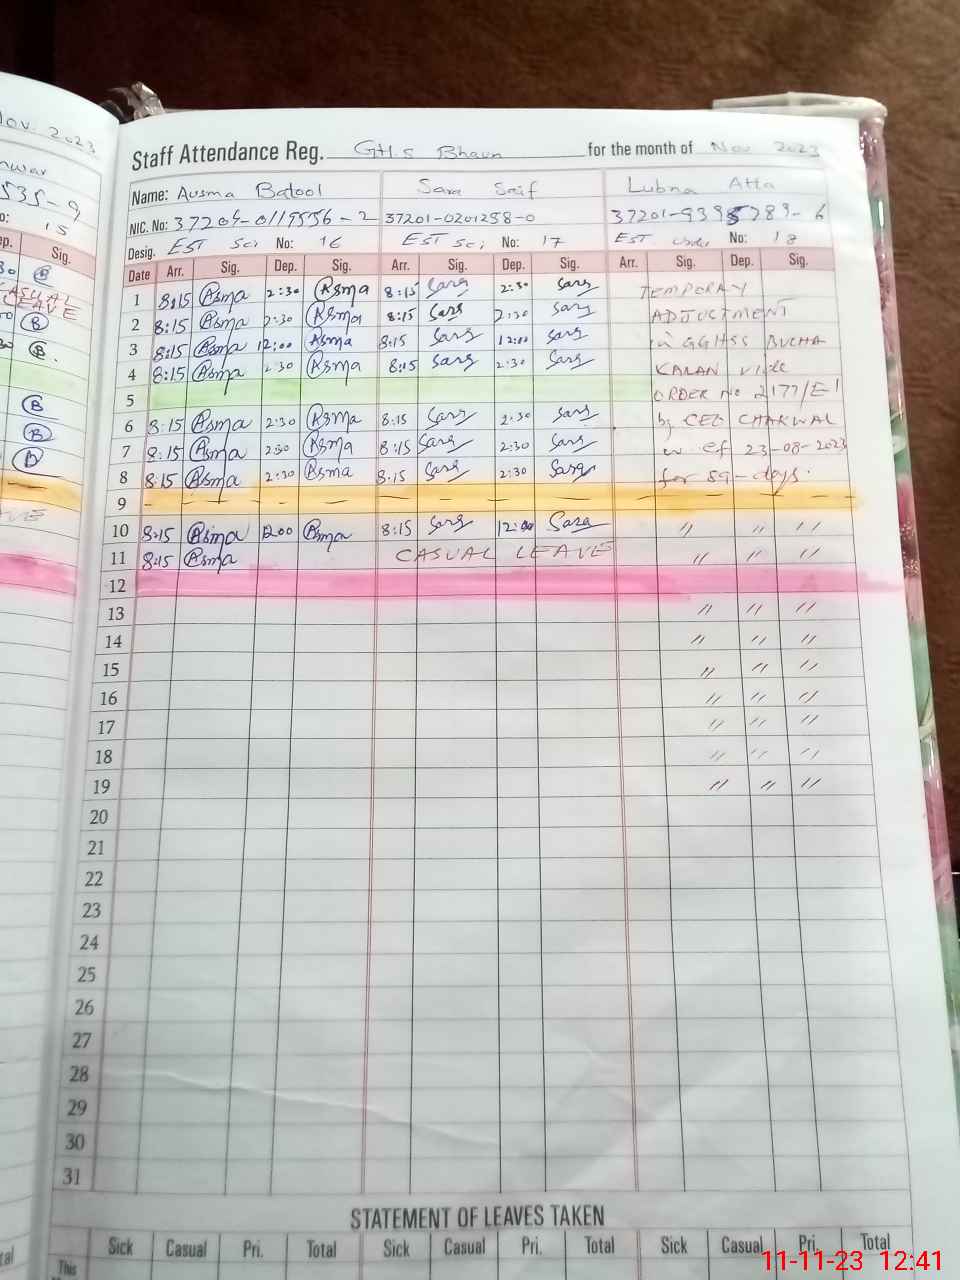 Nov. 2023
Staff Attendance Reg. GH.S Bhaun for the month of Nov 2023
Name: Ausma Batool Sara Saif Lubna Atta
NIC. No: 37201-0201258-0
Desig. EST Sci No: 16 EST Sci No: 17 EST No: 18
Date Arr. Sig. Dep. Sig. Arr. Sig. Dep. Sig. Arr. Sig. Dep. Sig.
1 8:15 Asma 2:30 Asma 8:15 Sara 2:30 Sara TEMPORAY
2 8:15 Asma 2:30 Asma 8:15 Sara 2:30 Sara ADJUCTMENT
3 8:15 Asma 12:00 Asma 8:15 Sara 12:00 Sara in GGHSS BUCHA
4 8:15 Asma 2:30 Asma 8:15 Sara 2:30 Sara KALAN vide
5 ORDER No 2177/E1
6 8:15 Asma 2:30 Asma 8:15 Sara 2:30 Sara by CEO CHAKWAL
7 8:15 Asma 2:30 Asma 8:15 Sara 2:30 Sara w.ef 23-08-2023
8 8:15 Asma 2:30 Asma 8:15 Sara 2:30 Sara for 89-days.
9
10 8:15 Asma 12:00 Asma 8:15 Sara 12:00 Sara 〃 〃 〃
11 8:15 Asma CASUAL LEAVE 〃 〃 〃
12
13 〃 〃 〃
14 〃 〃 〃
15 〃 〃 〃
16 〃 〃 〃
17 〃 〃 〃
18 〃 〃 〃
19 〃 〃 〃
20
21
22
23
24
25
26
27
28
29
30
31
STATEMENT OF LEAVES TAKEN
Sick Casual Pri. Total Sick Casual Pri. Total Sick Casual Pri. Total
This
11-11-23 12:41